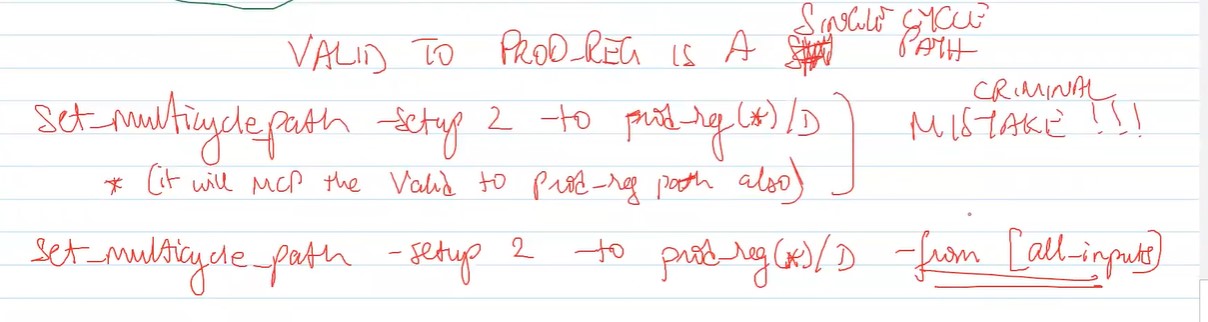 VALID TO PROD_REG IS A SINGLE CYCLE PATH
Set_multicycle path -setup 2 -to prod_reg(*)/D
* (it will MCP the Valid to Prod-reg path also)
CRIMINAL
MISTAKE !!!
Set_multicycle_path -setup 2 -to prod_reg(*)/D -from [all-inputs]